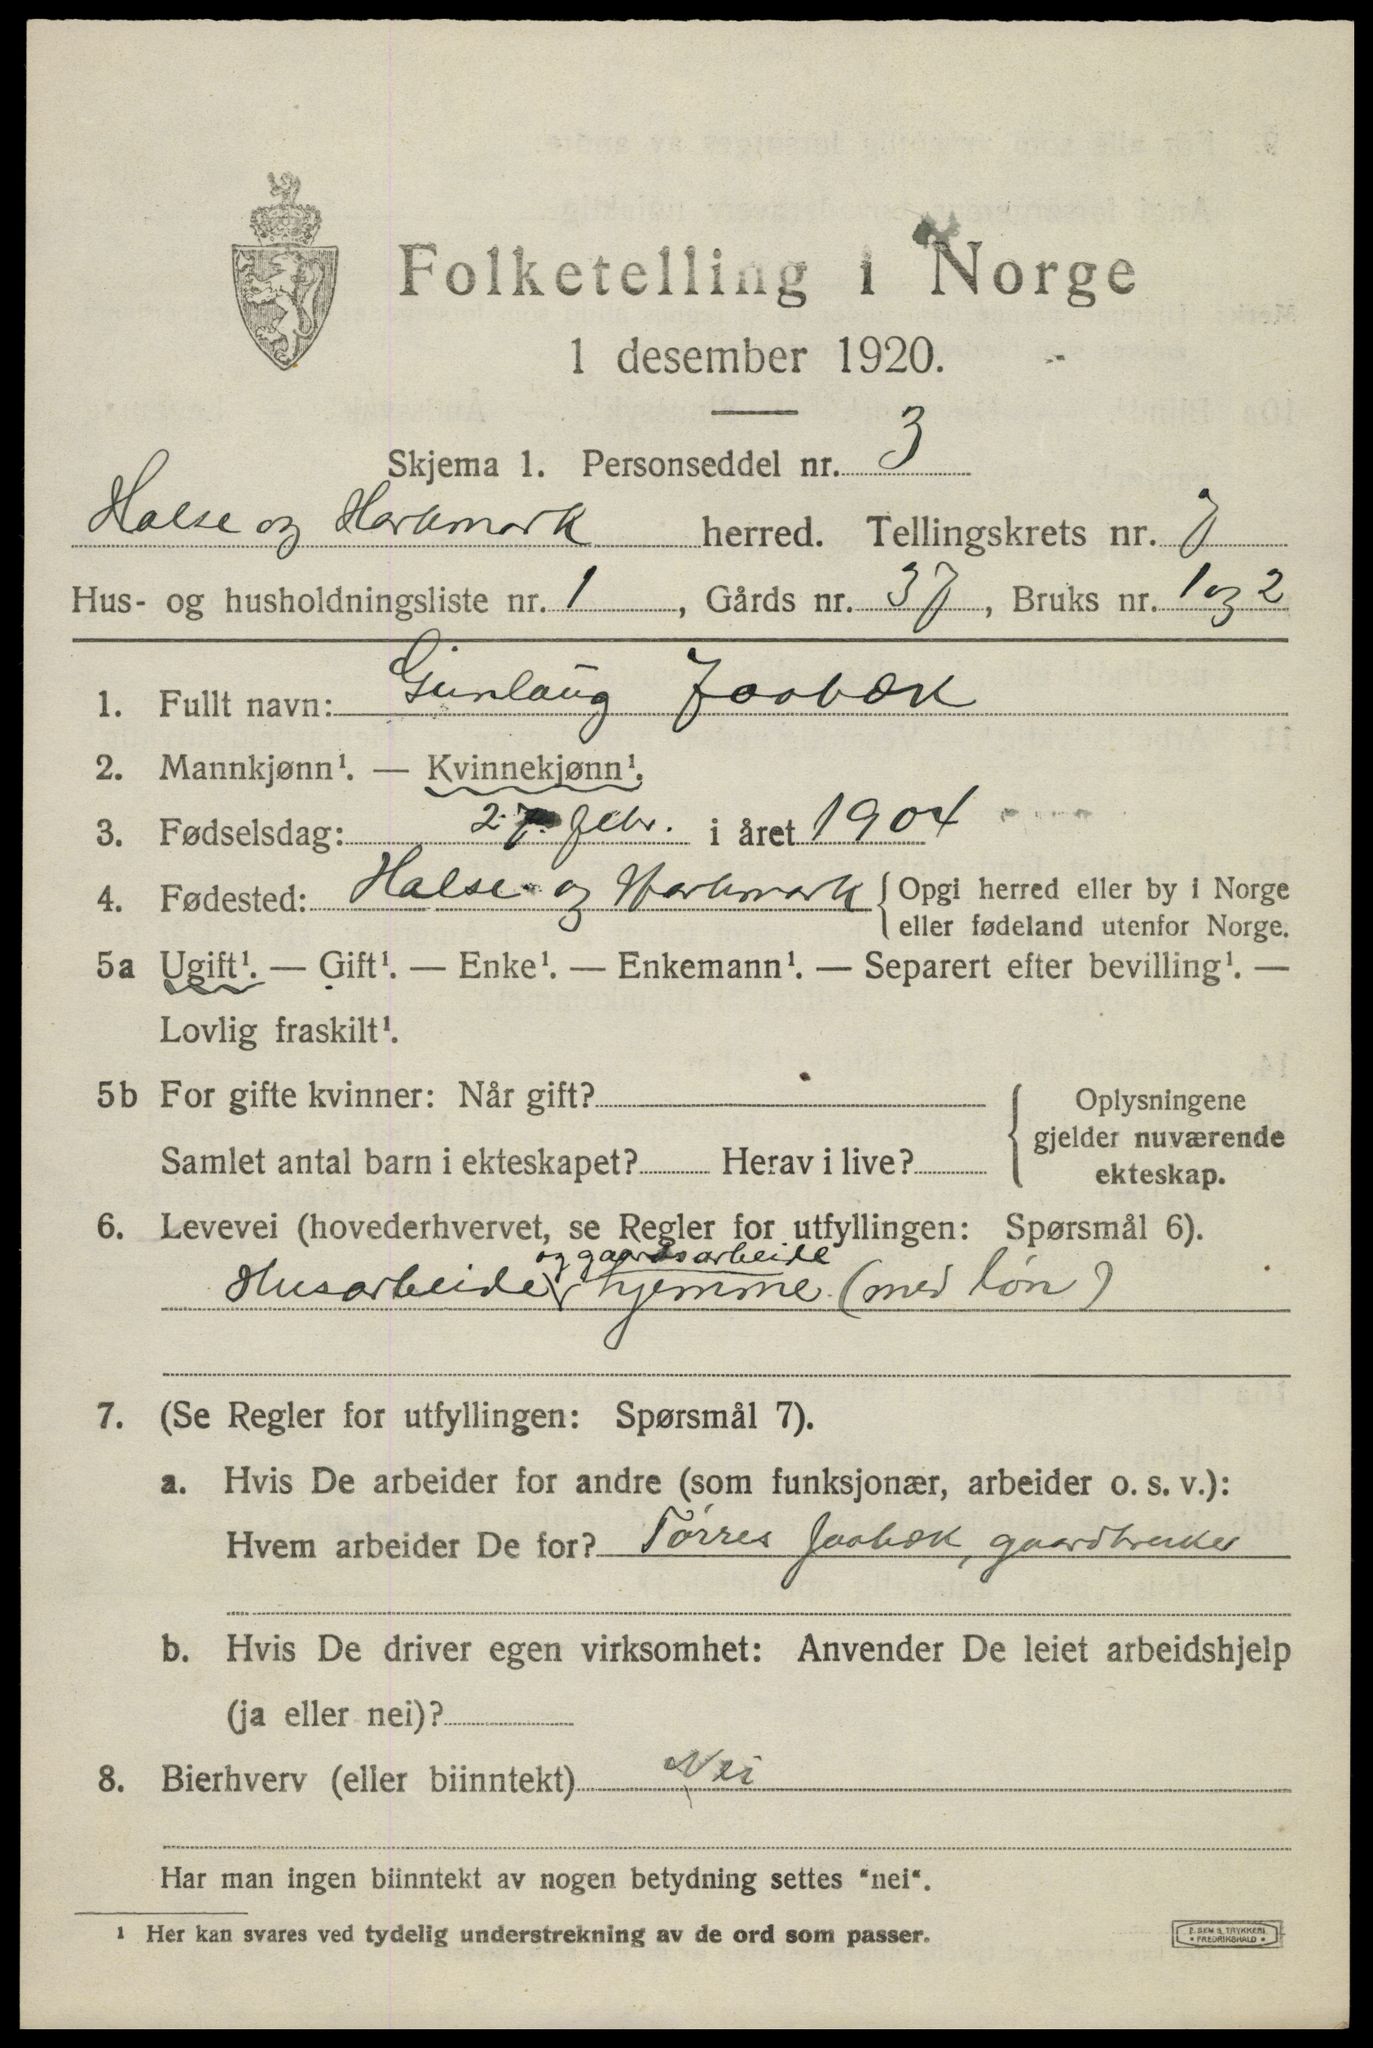 Folketelling i Norge
1 desember 1920.
Skjema 1. Personseddel nr. 3
Halse og Harkmark herred. Tellingskrets nr. 7
Hus- og husholdningsliste nr. 1, Gårds nr. 37, Bruks nr. 1 og 2
1. Fullt navn: Gunlaug Jaabæk
2. Mannkjønn¹. — Kvinnekjønn¹.
3. Fødselsdag: 27. febr. i året 1904
4. Fødested: Halse og Harkmark { Opgi herred eller by i Norge
eller fødeland utenfor Norge.
5a Ugift¹. — Gift¹. — Enke¹. — Enkemann¹. — Separert efter bevilling¹. —
Lovlig fraskilt¹.
5b For gifte kvinner: Når gift?
Samlet antal barn i ekteskapet? Herav i live?
{ Oplysningene
gjelder nuværende
ekteskap.
6. Levevei (hovederhvervet, se Regler for utfyllingen: Spørsmål 6).
og gaardsarbeide
Husarbeide hjemme (med løn)
7. (Se Regler for utfyllingen: Spørsmål 7).
a. Hvis De arbeider for andre (som funksjonær, arbeider o. s. v.):
Hvem arbeider De for? Tørres Jaabæk, gaardbruker
b. Hvis De driver egen virksomhet: Anvender De leiet arbeidshjelp
(ja eller nei)?
8. Bierhverv (eller biinntekt) Nei
Har man ingen biinntekt av nogen betydning settes "nei".
¹ Her kan svares ved tydelig understrekning av de ord som passer.
E. SEM'S TRYKKERI
• FREDRIKSHALD •